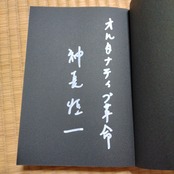 オルタナティブ革命
神長恒一